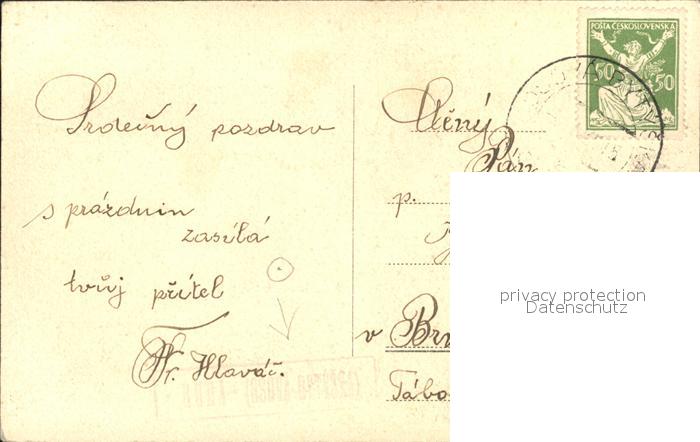 Srdečný pozdrav
s prázdnin
zasílá
tvůj přítel
Fr. Hlaváč.
POŠTA ČESKOSLOVENSKÁ
50 50
Ctěný
Pán
p.
v Br
Tábo
privacy protection
Datenschutz